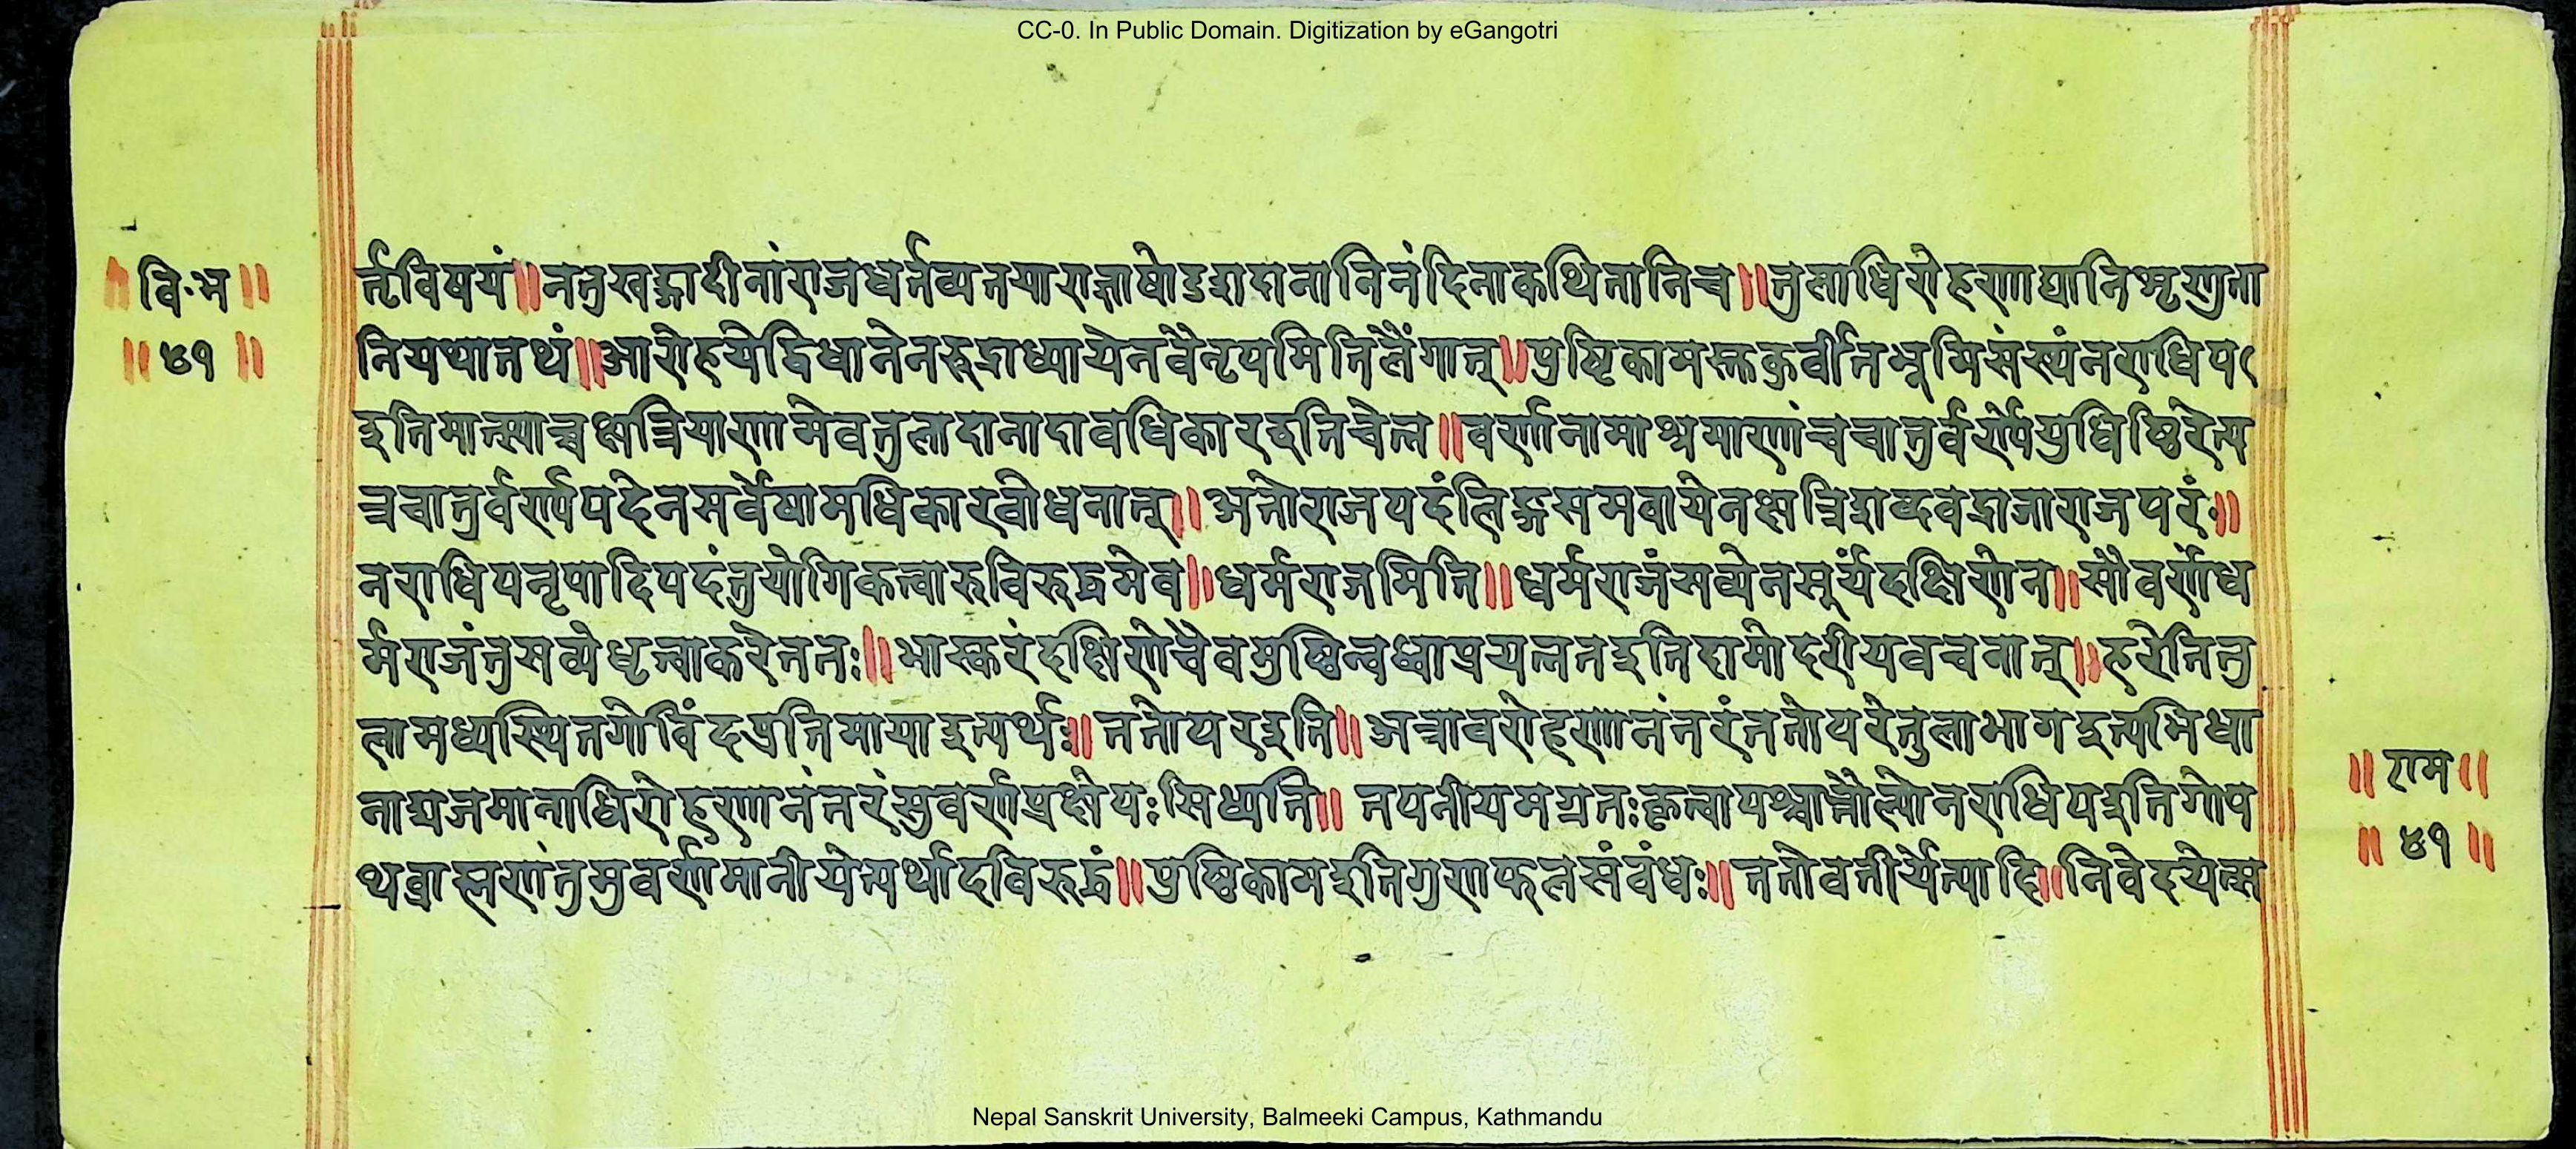 CC-0. In Public Domain. Digitization by eGangotri
वि.म
॥ ४१ ॥
र्तृविषयं॥ ननु खड्गादीनां राजधर्त्तव्यतया राज्ञा षोडशदानानि नंदिना कथितानि च॥ तुलाधिरोहणाद्यानि शृणु ता
नि यथातथं॥ आरोहयेद्विधानेन रुद्राध्यायेन वै नृपमिति लैंगात्॥ पुष्टिकामस्तु कुर्वीत भूमिसंस्थं नराधिप
इति मात्स्याच्च क्षत्रियाणामेव तुलादानादावधिकार इति चेत्न॥ वर्णानामाश्रमाणां च चातुर्वर्ण्ये युधिष्ठिरेत्य
त्र चातुर्वर्ण्यपदेन सर्वेषामधिकारबोधनात्॥ अतो राजपदं लिङ्गसमवायेन क्षत्रिशब्दवद्राजाराजपरं॥
नराधिपनृपादिपदं तु योगिकत्वारुविरुद्धमेव॥ धर्मराजमिति॥ धर्मराजं सव्येन सूर्यं दक्षिणेन॥ सौवर्णं ध
र्मराजं तु सव्ये धृत्वा करे ततः॥ भास्करं दक्षिणे चैव मुष्ठिं बध्वा प्रयत्नत इति दामोदरीयवचनात्॥ हरेति तु
लामध्यस्थितगोविंदप्रतिमाया इत्यर्थः॥ ततोपर इति॥ अत्रावरोहणानंतरं ततोपरे तुलाभाग इत्यभिधा
नाद्यजमानाधिरोहणानंतरं सुवर्णप्रक्षेपः सिध्यति॥ तपनीयमग्रतः कृत्वा पश्चात्तौल्यो नराधिप इति गोप
थब्राह्मणं तु सुवर्णमानीयेत्यर्थादविरुद्धं॥ पुष्ठिकाम इति गुणफलसंबंधः॥ ततोवतीर्येत्यादि॥ निवेदयेत्स
॥ राम ॥
॥ ४१ ॥
Nepal Sanskrit University, Balmeeki Campus, Kathmandu